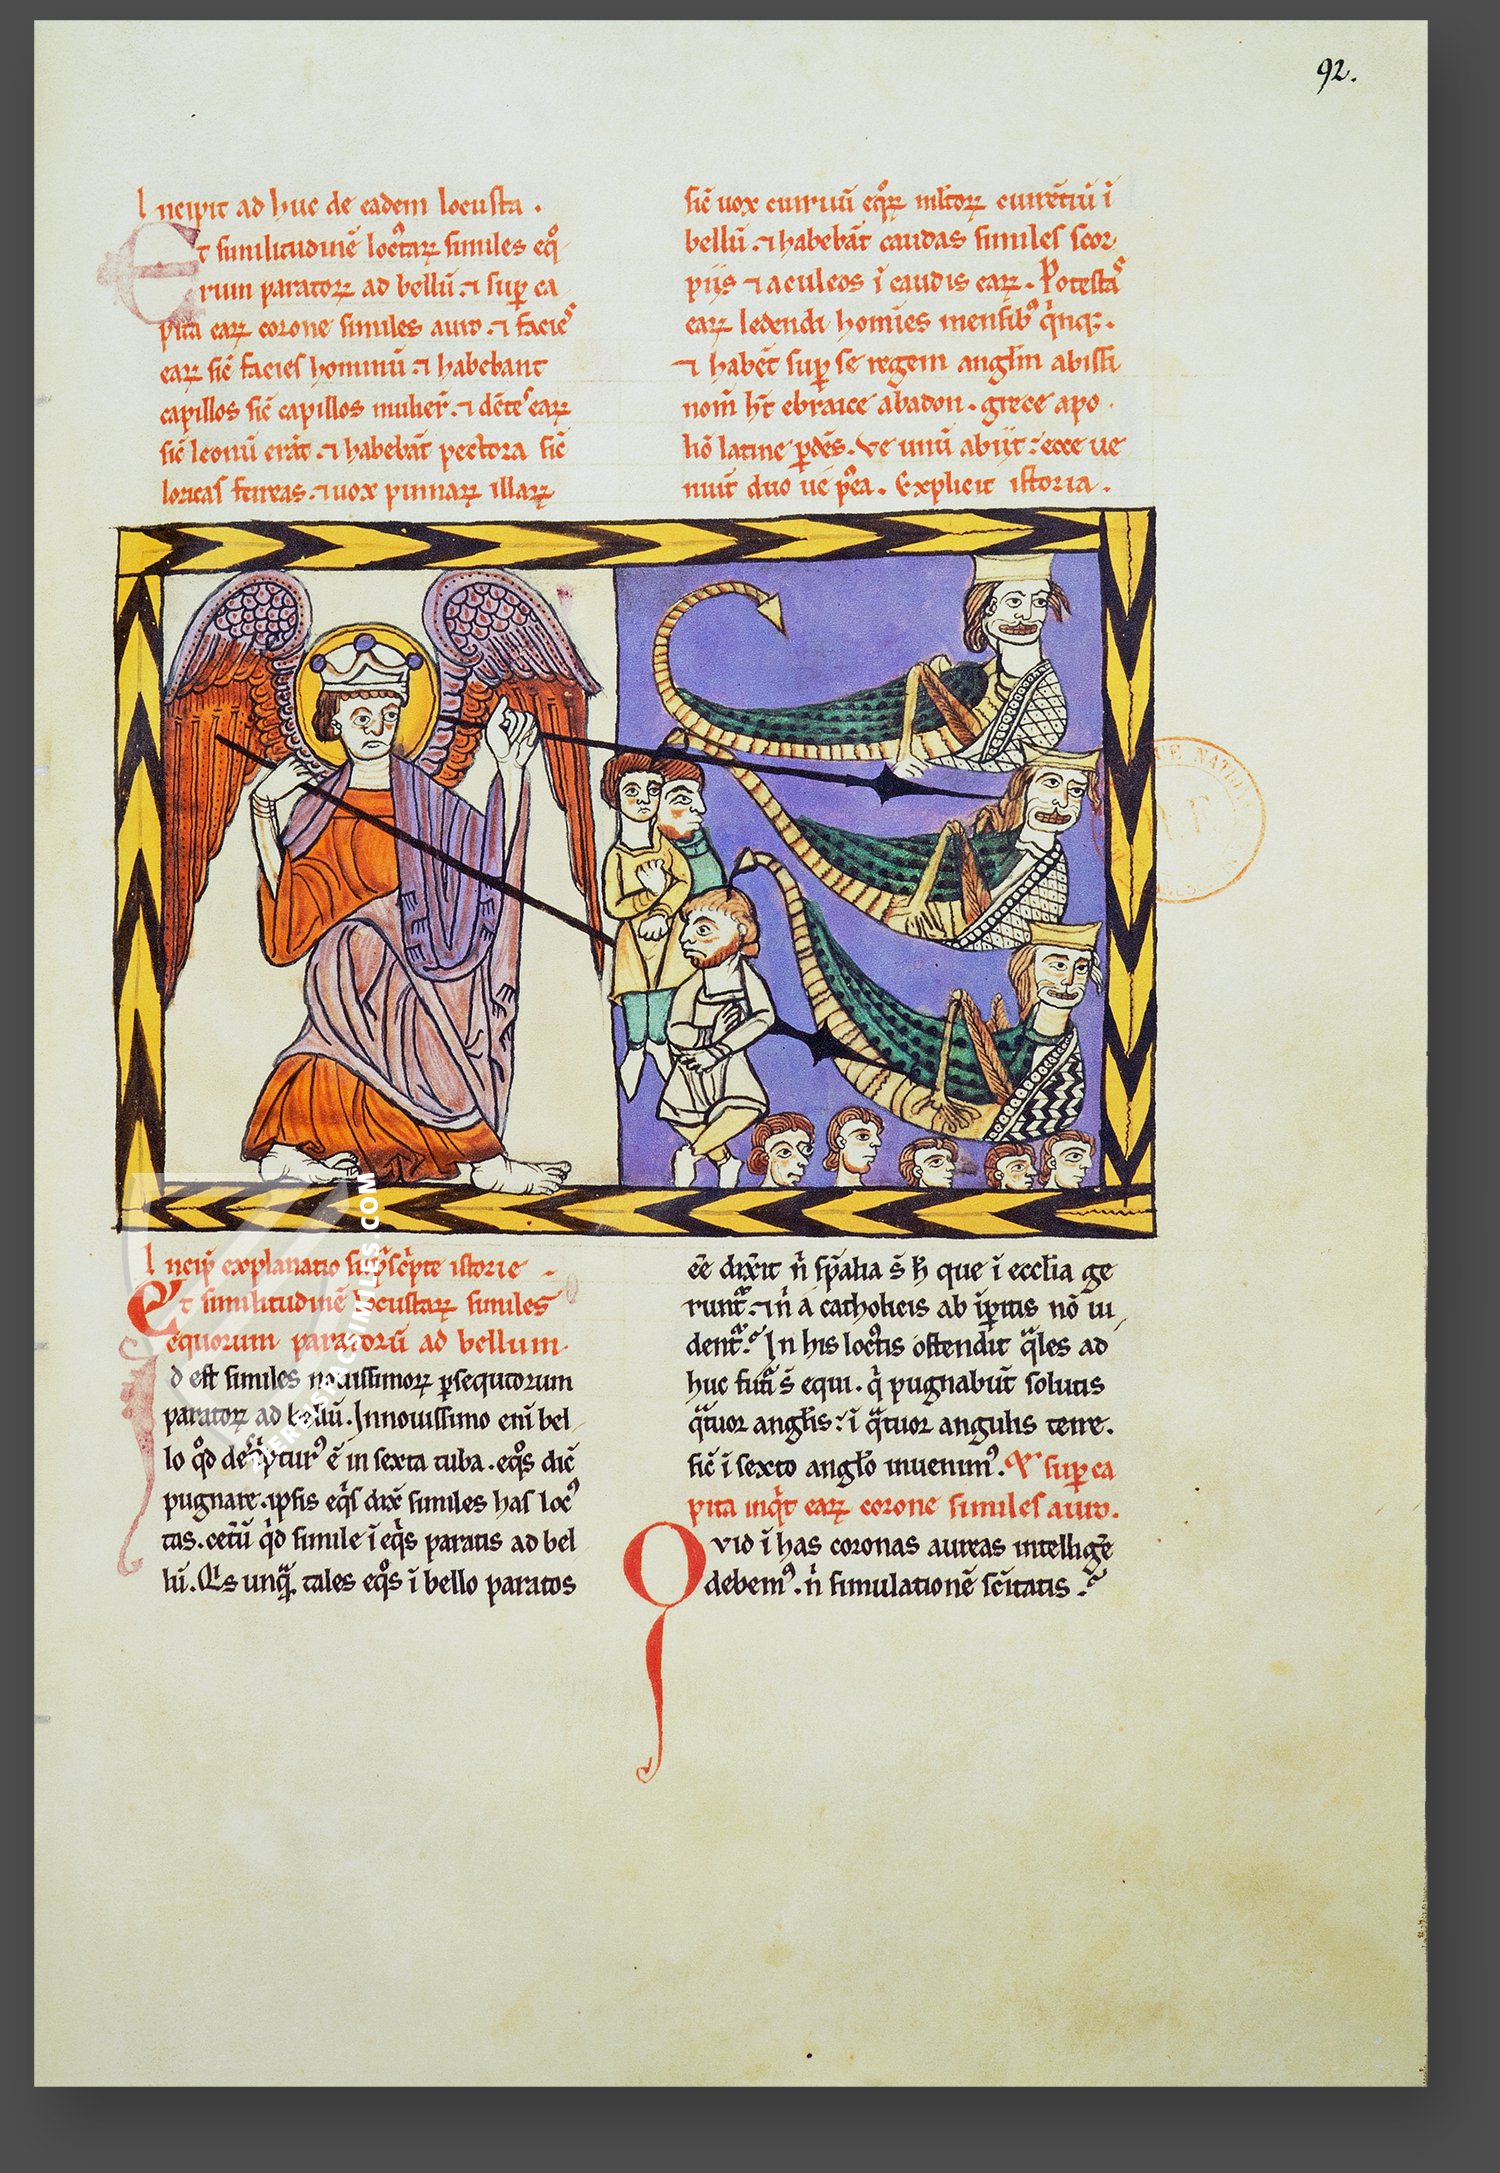 92.
Incipit ad huc de eadem locusta .
Et similitudinē locᵒtaꝝ similes eqͦ
rum paratoꝝ ad bellū . ⁊ suꝑ ca
pita eaꝝ corone similes auro . ⁊ facieˢ
eaꝝ sic̄ facies hominū . ⁊ habebant
capillos sic̄ capillos mulier̄ . ⁊ dēteˢ eaꝝ
sic̄ leonū erāt . ⁊ habebāt pectora sic̄
loricas ferreas . ⁊ uox pinnaꝝ illaꝝ
sic̄ uox curruū eqͦꝝ mltoꝝ currētiū ī
bellū . ⁊ habebāt caudas similes scor
piis ⁊ aculeos ī caudis eaꝝ . Potestaˢ
eaꝝ ledendi homīes mensibꝰ qͥnqꝫ .
⁊ habēt suꝑ se regem angl̄m abissi
nom̄ h̄t ebraice abadon . grece apo
lioͦ latine ꝑdēs . Ve unū abiit : ecce ue
niut̄ duo ue p̄ea . Explicit istoria .
Incip̄ explanatio sup̄sc̄pte istorie
Et similitudinē locustaꝝ similes
equorum paratorū ad bellum .
Id est similes nouissimoꝝ ꝑsequtorum
paratoꝝ ad bellū . In nouissimo enī bel
lo qͦd descͥpturꝰ ē in sexta tuba . eqͦs dic̄
pugnare . ipsis eqͥs dix̄ similes has locꝰ
tas . cetū qͥd simile ī eqͥs paratis ad bel
lū . Qͥs unqͣ tales eqͦs ī bello paratos
eē dixit n̄ sp̄alia s̄ h̄ que ī eccl̄ia ge
runtͬ . ⁊ n̄ a catholicis ab īperitis nō ui
dentͬ . In his locᵒtis ostendit qͣles ad
huc futͥ s̄ equi . qͥ pugnabūt solutis
qͣtuor angl̄is : ī qͣtuor angulis terre .
sic̄ ī sexto angl̄o inuenimꝰ . Et suꝑ ca
pita inqͥt eaꝝ corone similes auro .
Qvid ī has coronas aureas intelligͤe
debemꝰ . n̄ simulationē sc̄itatis .